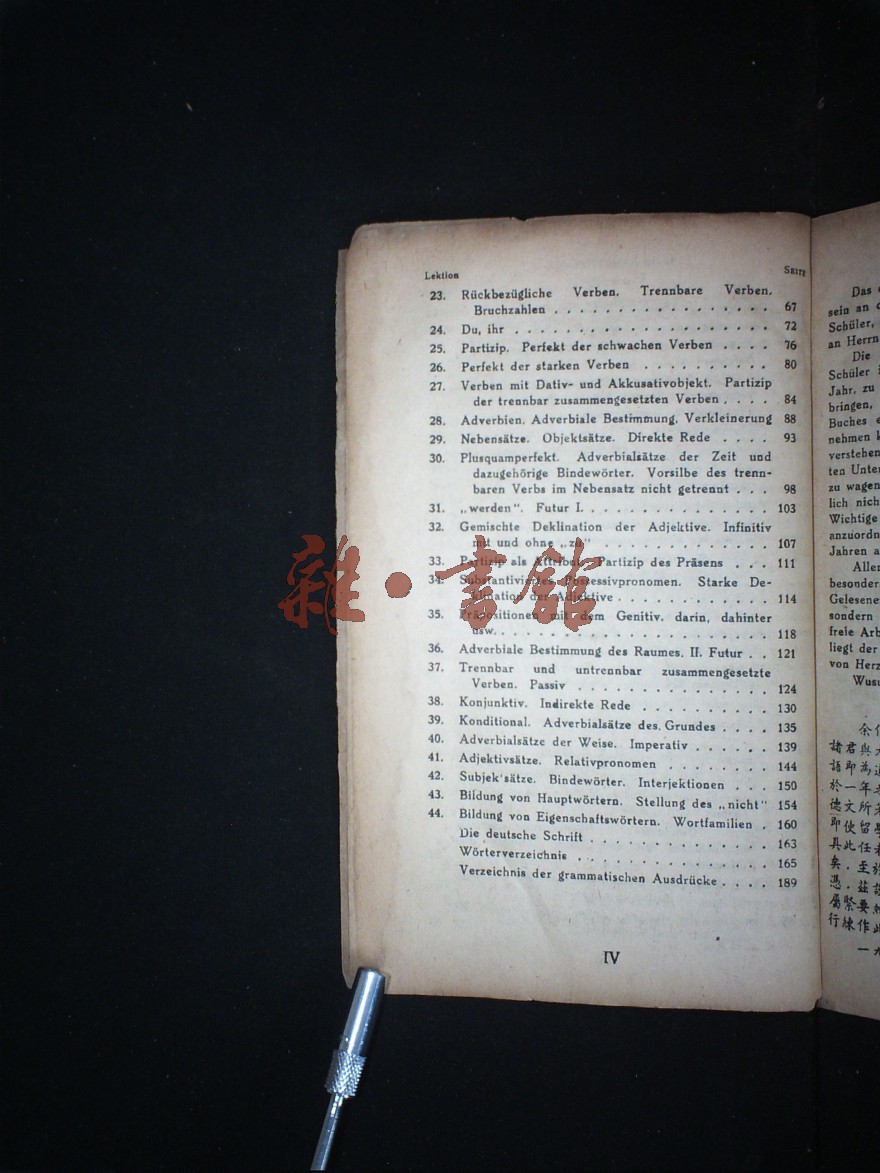 Lektion SEITE
23. Rückbezügliche Verben. Trennbare Verben.
Bruchzahlen . . . . . . . . . . . . . . . . . 67
24. Du, ihr . . . . . . . . . . . . . . . . . . . 72
25. Partizip. Perfekt der schwachen Verben . . . . 76
26. Perfekt der starken Verben . . . . . . . . . . 80
27. Verben mit Dativ- und Akkusativobjekt. Partizip
der trennbar zusammengesetzten Verben . . . . 84
28. Adverbien. Adverbiale Bestimmung. Verkleinerung 88
29. Nebensätze. Objektsätze. Direkte Rede . . . . 93
30. Plusquamperfekt. Adverbialsätze der Zeit und
dazugehörige Bindewörter. Vorsilbe des trenn-
baren Verbs im Nebensatz nicht getrennt . . . 98
31. „werden". Futur I. . . . . . . . . . . . . 103
32. Gemischte Deklination der Adjektive. Infinitiv
mit und ohne „zu" . . . . . . . . . . . . . 107
33. Partizip als Attribut. Partizip des Präsens . . . 111
34. Substantiviertes Possessivpronomen. Starke De-
klination der Adjektive . . . . . . . . . . . . 114
35. Präpositionen mit dem Genitiv. darin, dahinter
usw. . . . . . . . . . . . . . . . . . . . . 118
36. Adverbiale Bestimmung des Raumes. II. Futur . . 121
37. Trennbar und untrennbar zusammengesetzte
Verben. Passiv . . . . . . . . . . . . . . . 124
38. Konjunktiv. Indirekte Rede . . . . . . . . . . 130
39. Konditional. Adverbialsätze des. Grundes . . . . 135
40. Adverbialsätze der Weise. Imperativ . . . . . . 139
41. Adjektivsätze. Relativpronomen . . . . . . . . 144
42. Subjek'sätze. Bindewörter. Interjektionen . . . 150
43. Bildung von Hauptwörtern. Stellung des „nicht" 154
44. Bildung von Eigenschaftswörtern. Wortfamilien . 160
Die deutsche Schrift . . . . . . . . . . . . . 163
Wörterverzeichnis . . . . . . . . . . . . . . 165
Verzeichnis der grammatischen Ausdrücke . . . . 189
IV
Das
sein an
Schüler,
an Herrn
Die
Schüler
Jahr, zu
bringen,
Buches
nehmen
verstehen
ten Unter
zu wagen
lich nicht
Wichtige
anzuordn
Jahren a
Allen
besonder
Gelesene
sondern
freie Arb
liegt der
von Herz
Wusu
余
諸君與
語即為
於一年
德文所
即使留學
具此任
矣．至於
憑．茲
屬緊要
行練作此
一九
雜·書館